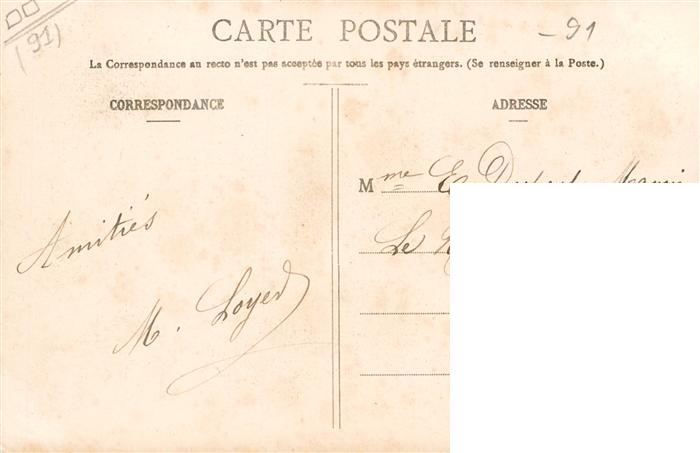 (91)
CARTE POSTALE
- 91
La Correspondance au recto n'est pas acceptée par tous les pays étrangers. (Se renseigner à la Poste.)
CORRESPONDANCE
ADRESSE
Mme E.
Le
Amitiés
M. Loyer